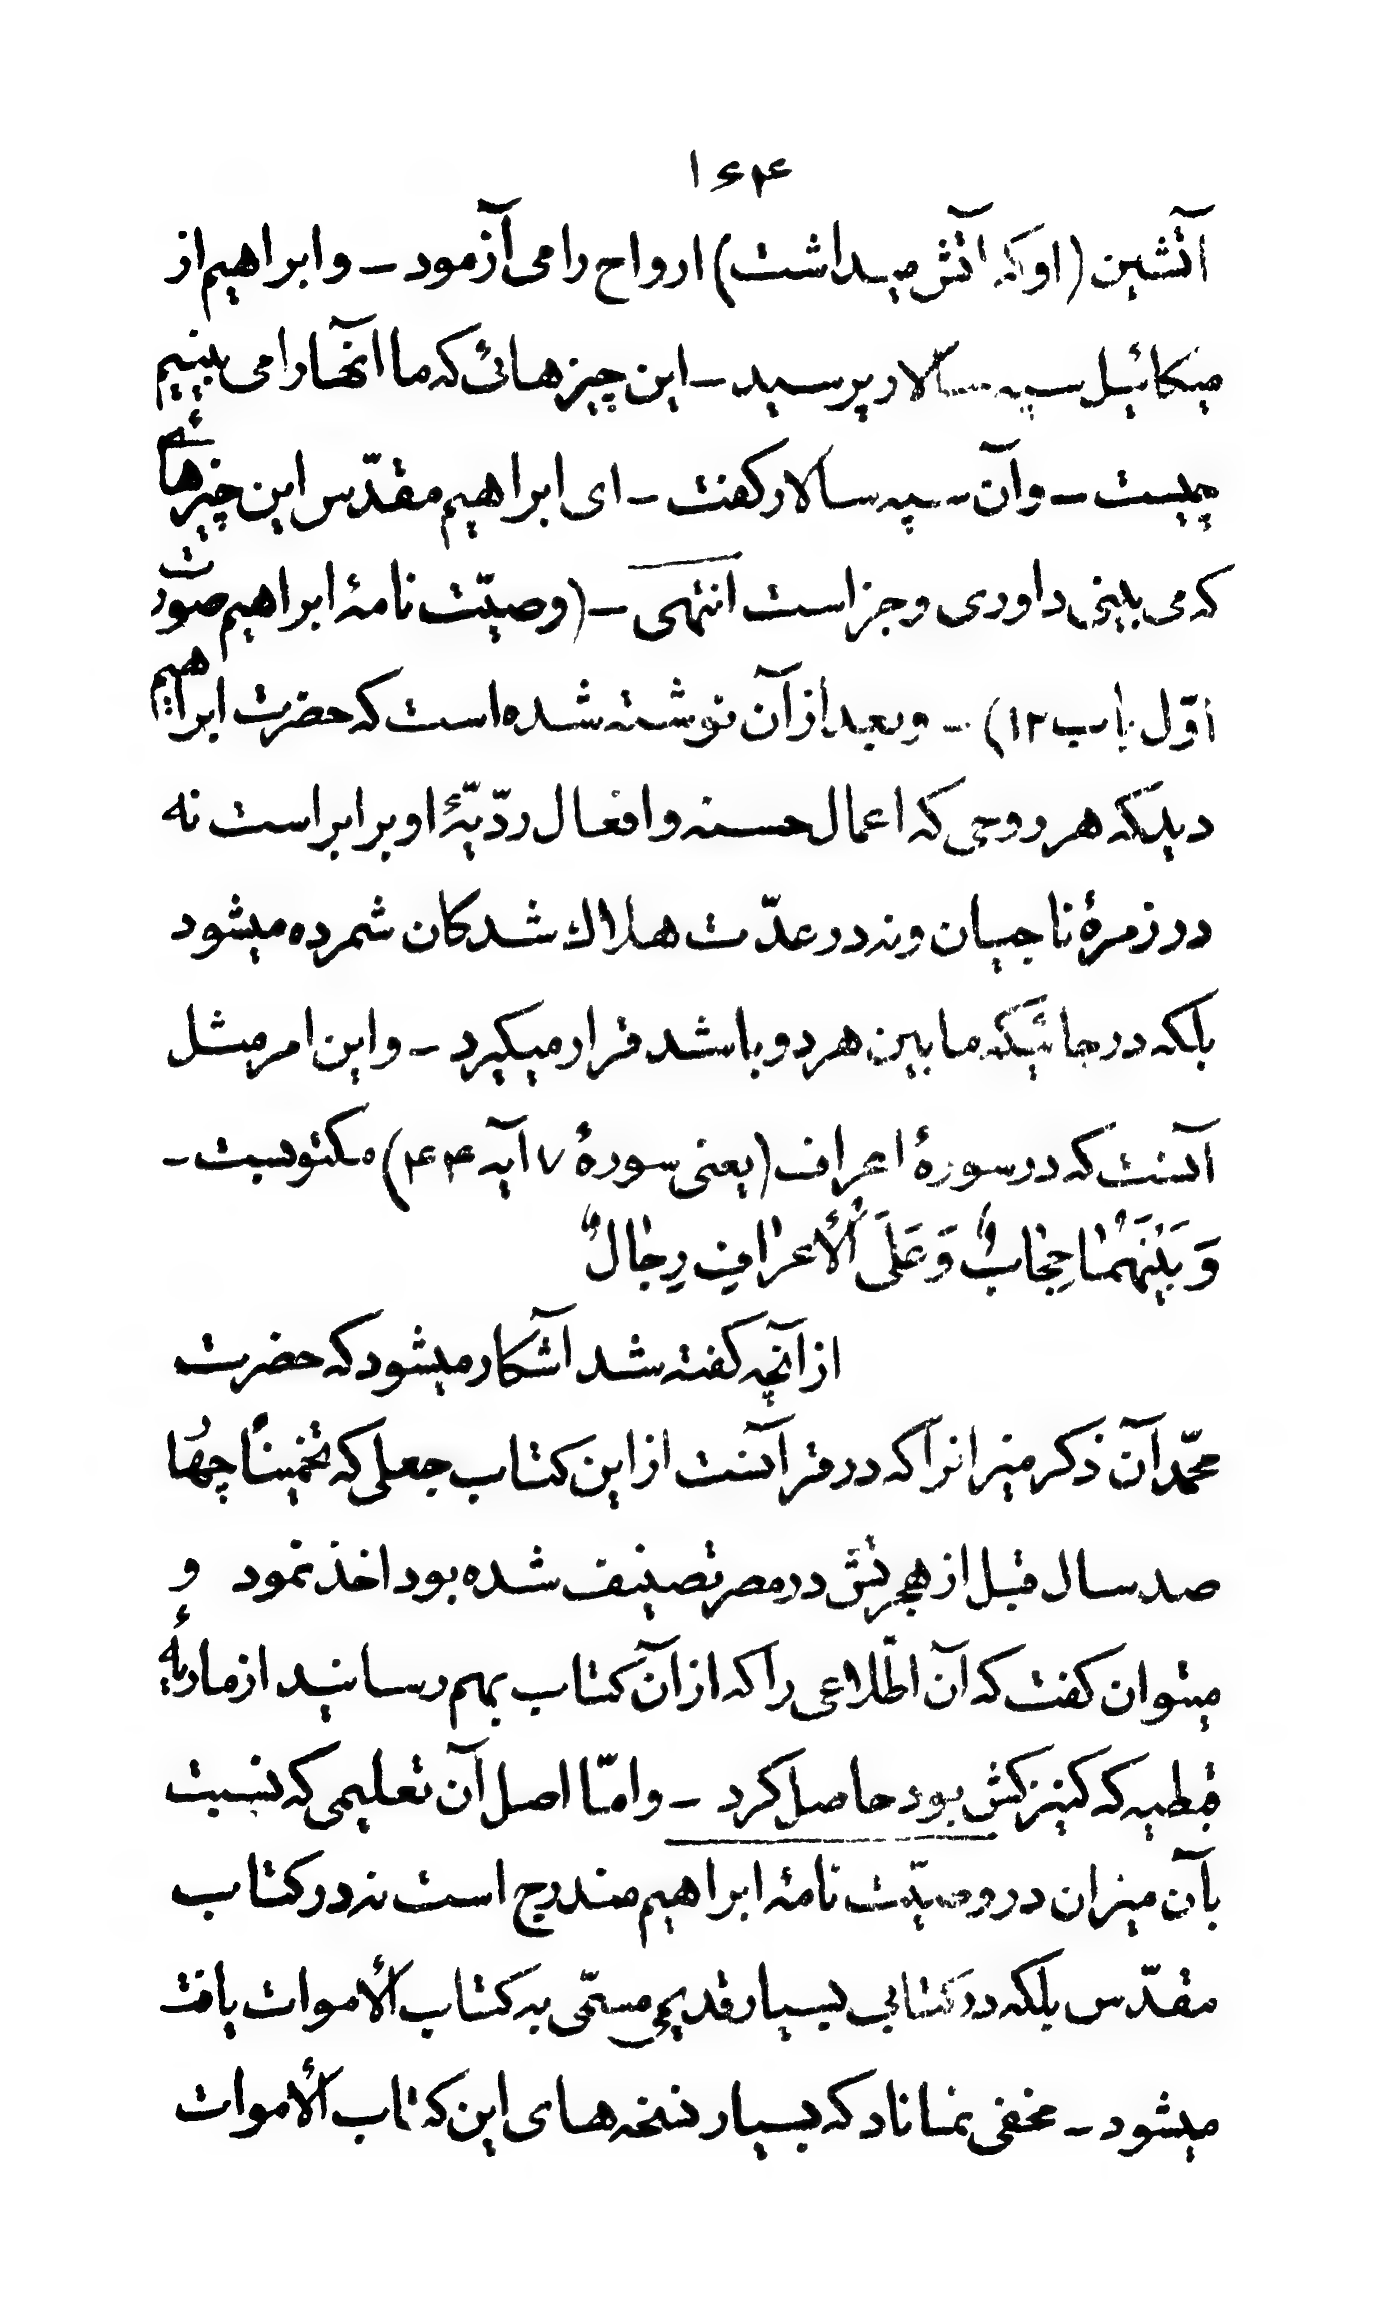 ۱۶۴
آتشین (او که آتش میداشت) ارواح را می آزمود ـ و ابراهیم از
میکائیل سپه سالار پرسید ـ این چیزهائی که ما آنها را می بینیم
چیست ـ و آن سپه سالار گفت ـ ای ابراهیم مقدّس این چیزهائی
که می بینی داوری و جزاست انتهی ـ (وصیّت نامهٔ ابراهیم صورت
اوّل باب ۱۲) ـ و بعد از آن نوشته شده است که حضرت ابراهیم
دید که هر روحی که اعمال حسنه و افعال ردّیّهٔ او برابر است نه
در زمرهٔ ناجیان و نه در عدّت هلاك شدکان شمرده میشود
بلکه در جائیکه ما بین هر دو باشد قرار میکیرد ـ و این امر مثل
آنست که در سورهٔ اعراف (یعنی سورهٔ ۷ آیه ۴۴) مکتوبست ـ
وَ بَیْنَهُمٰا حِجٰابٌ وَ عَلَی الْأَعرٰافِ رِجٰالٌ
از آنچه کفته شد آشکار میشود که حضرت
محمّد آن ذکر میزانرا که در قرآنست از این کتاب جعلی که تخمیناً چهار
صد سال قبل از هجرتش در مصر تصنیف شده بود اخذ نمود و
میتوان کفت که آن اطّلاعی را که از آن کتاب بهم رسانید از ماریهٔ
قبطیه که کنیزکش بود حاصل کرد ـ و امّا اصل آن تعلیمی که نسبت
بآن میزان در وصیّت نامهٔ ابراهیم مندرج است نه در کتاب
مقدّس بلکه در کتابی بسیار قدیمی مسمّی به کتاب الأموات یافت
میشود ـ مخفی نماناد که بسیار نسخه های این کتاب الأموات